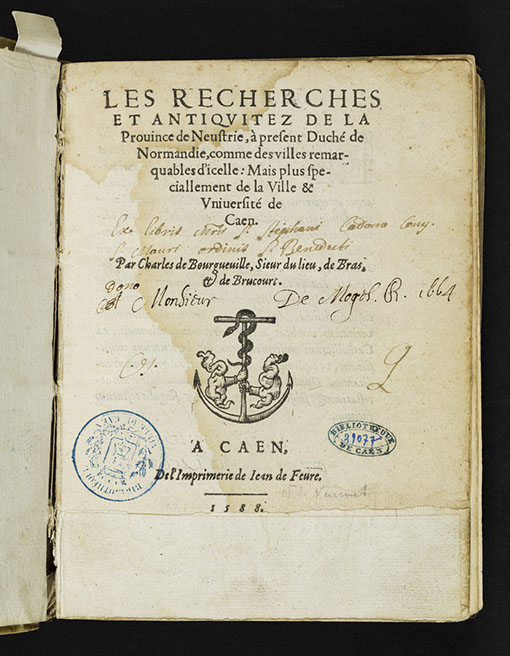 LES RECHERCHES
ET ANTIQVITEZ DE LA
Prouince de Neustrie, à present Duché de
Normandie, comme des villes remar-
quables d'icelle: Mais plus spe-
ciallement de la Ville &
Vniuersité de
Caen.
Ex libris sti stephani Cadom
S. Mauri ordinis sti Benedicti
Par Charles de Bourgueuille, Sieur du lieu, de Bras,
& de Brucourt.
Dono
Monsieur De 1664
A CAEN,
De l'Imprimerie de Iean de Feure.
1588.
BIBLIOTHEQUE
39077
DE CAEN